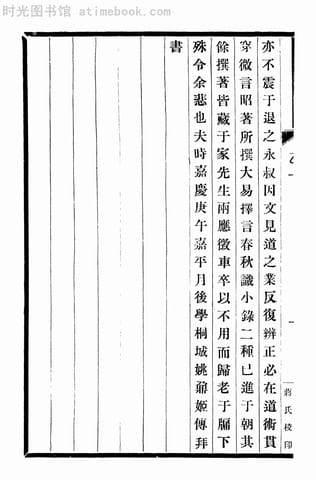 时光图书馆 atimebook.com
蔣氏校印
亦不震于退之永叔因文見道之業反復辨正必在道術貫
穿微言昭著所撰大易擇言春秋識小錄二種已進于朝其
餘撰著皆藏于家先生兩應徵車卒以不用而歸老于牖下
殊令余悲也夫時嘉慶庚午嘉平月後學桐城姚鼐姬傳拜
書